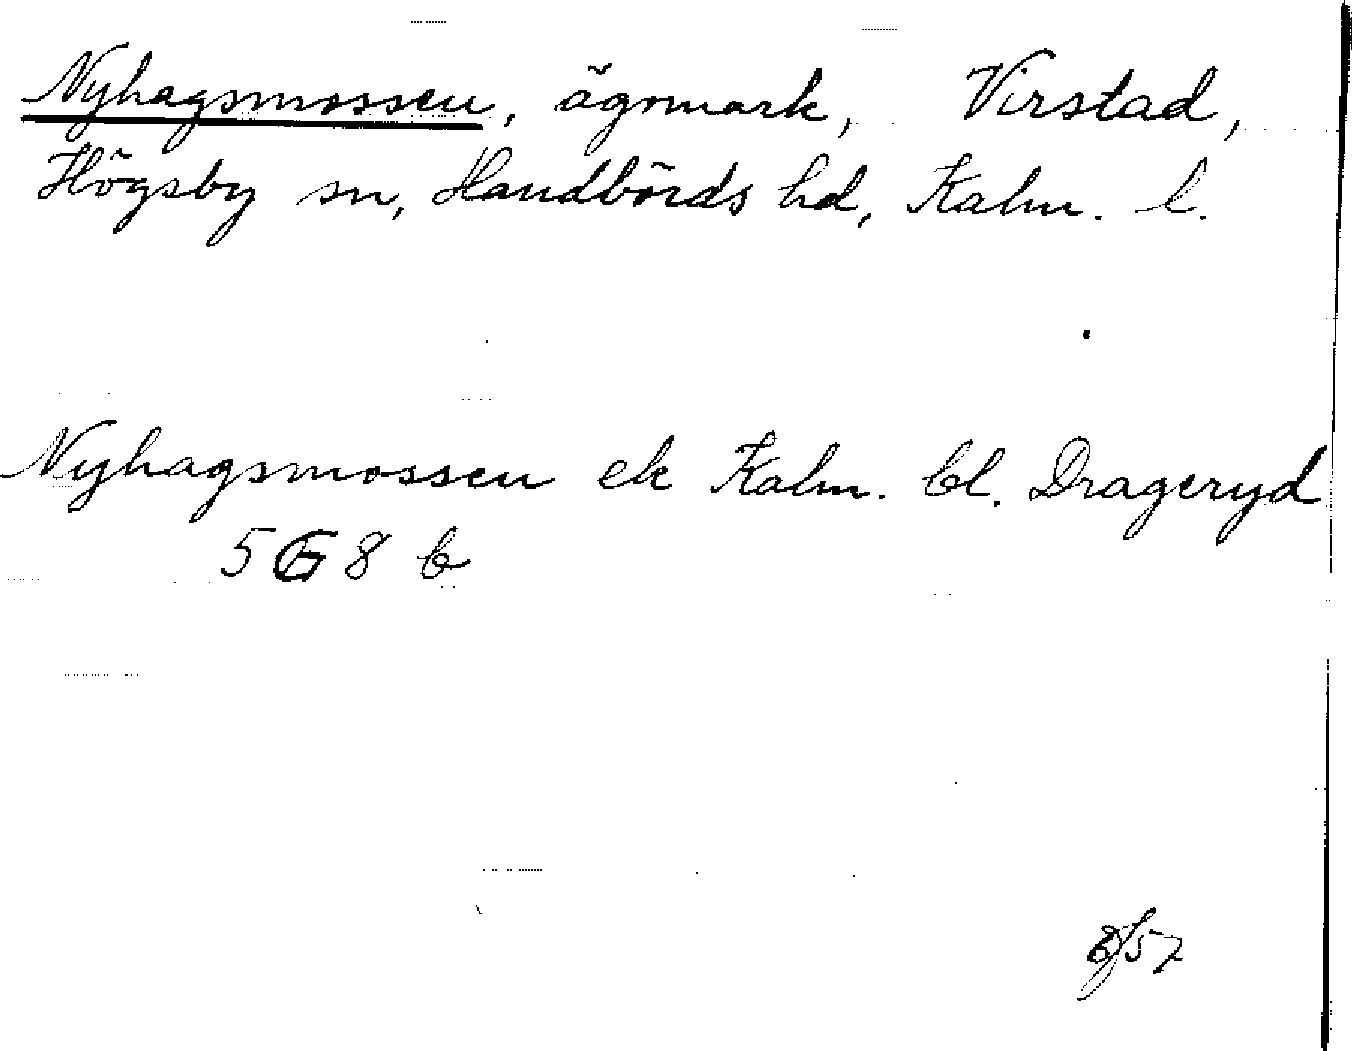 Nyhagsmossen, ägomark, Virstad,
Högsby sn, Handbörds hd, Kalm. l.
Nyhagsmossen ek Kalm. bl. Drageryd
5G8 b